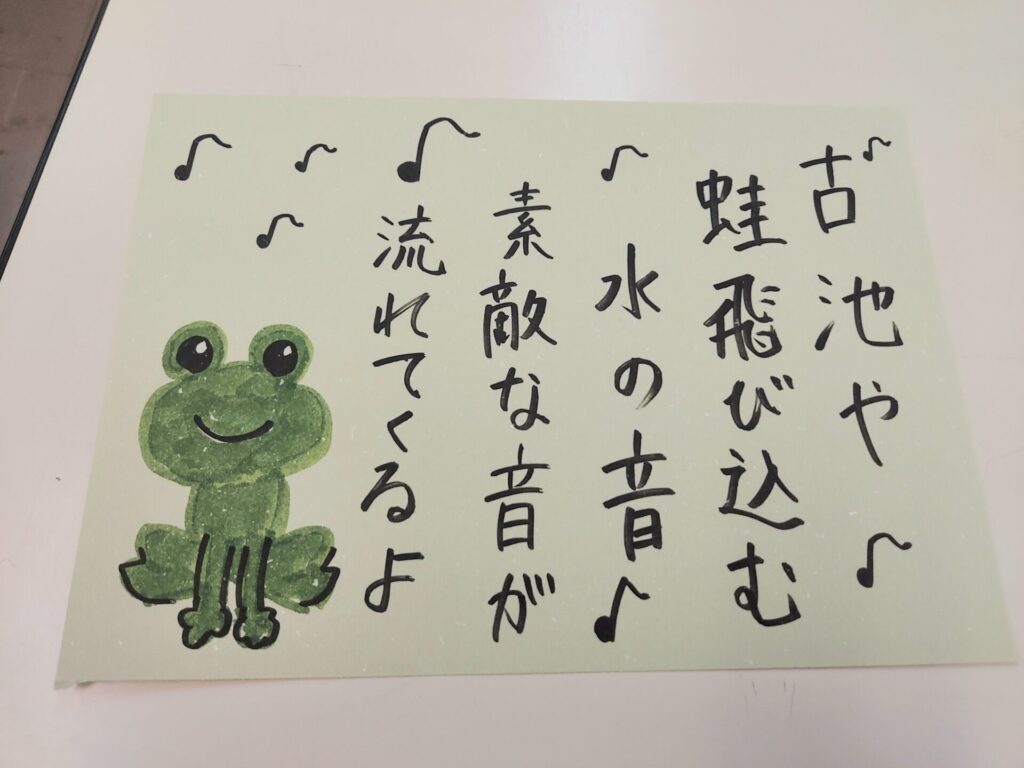 古池や
蛙飛び込む
水の音
素敵な音が
流れてくるよ